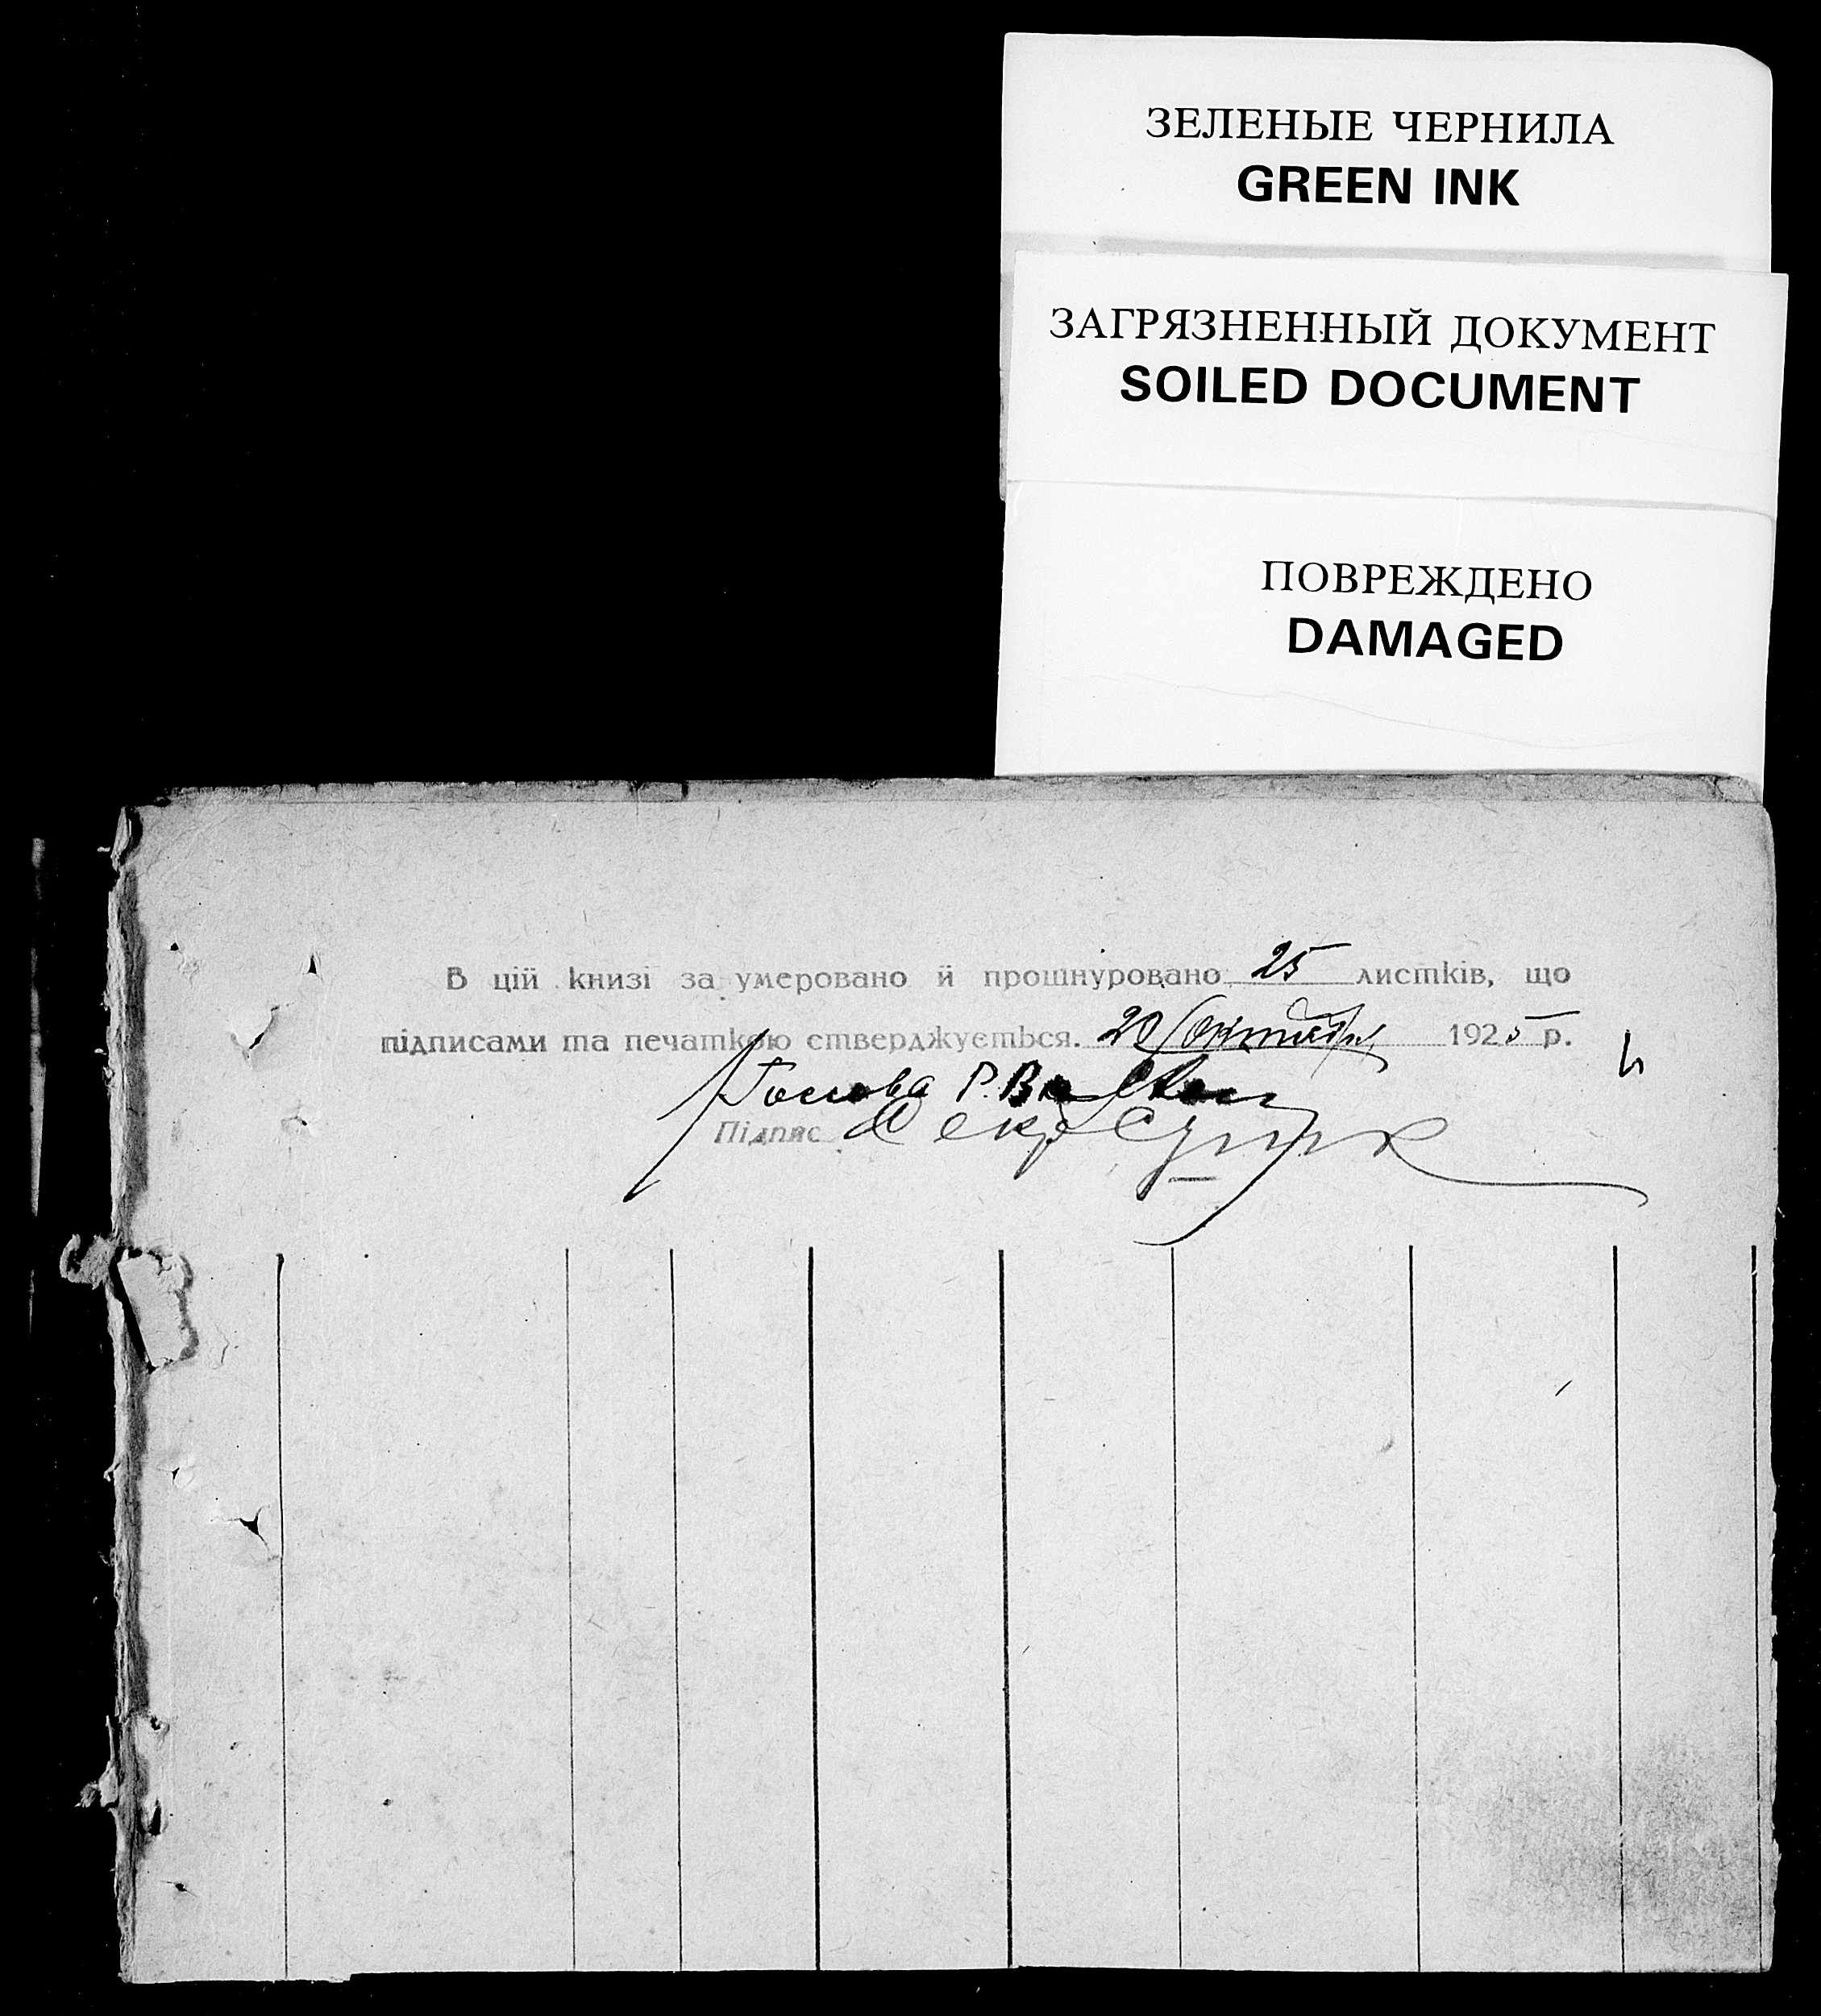 ЗЕЛЕНЫЕ ЧЕРНИЛА
GREEN INK
ЗАГРЯЗНЕННЫЙ ДОКУМЕНТ
SOILED DOCUMENT
ПОВРЕЖДЕНО
DAMAGED
В цій книзі за умеровано й прошнуровано 25 листків, що
підписами та печаткою стверджується. 20 Октября 1925 р.
Голова Р.В.
Підпис Секр